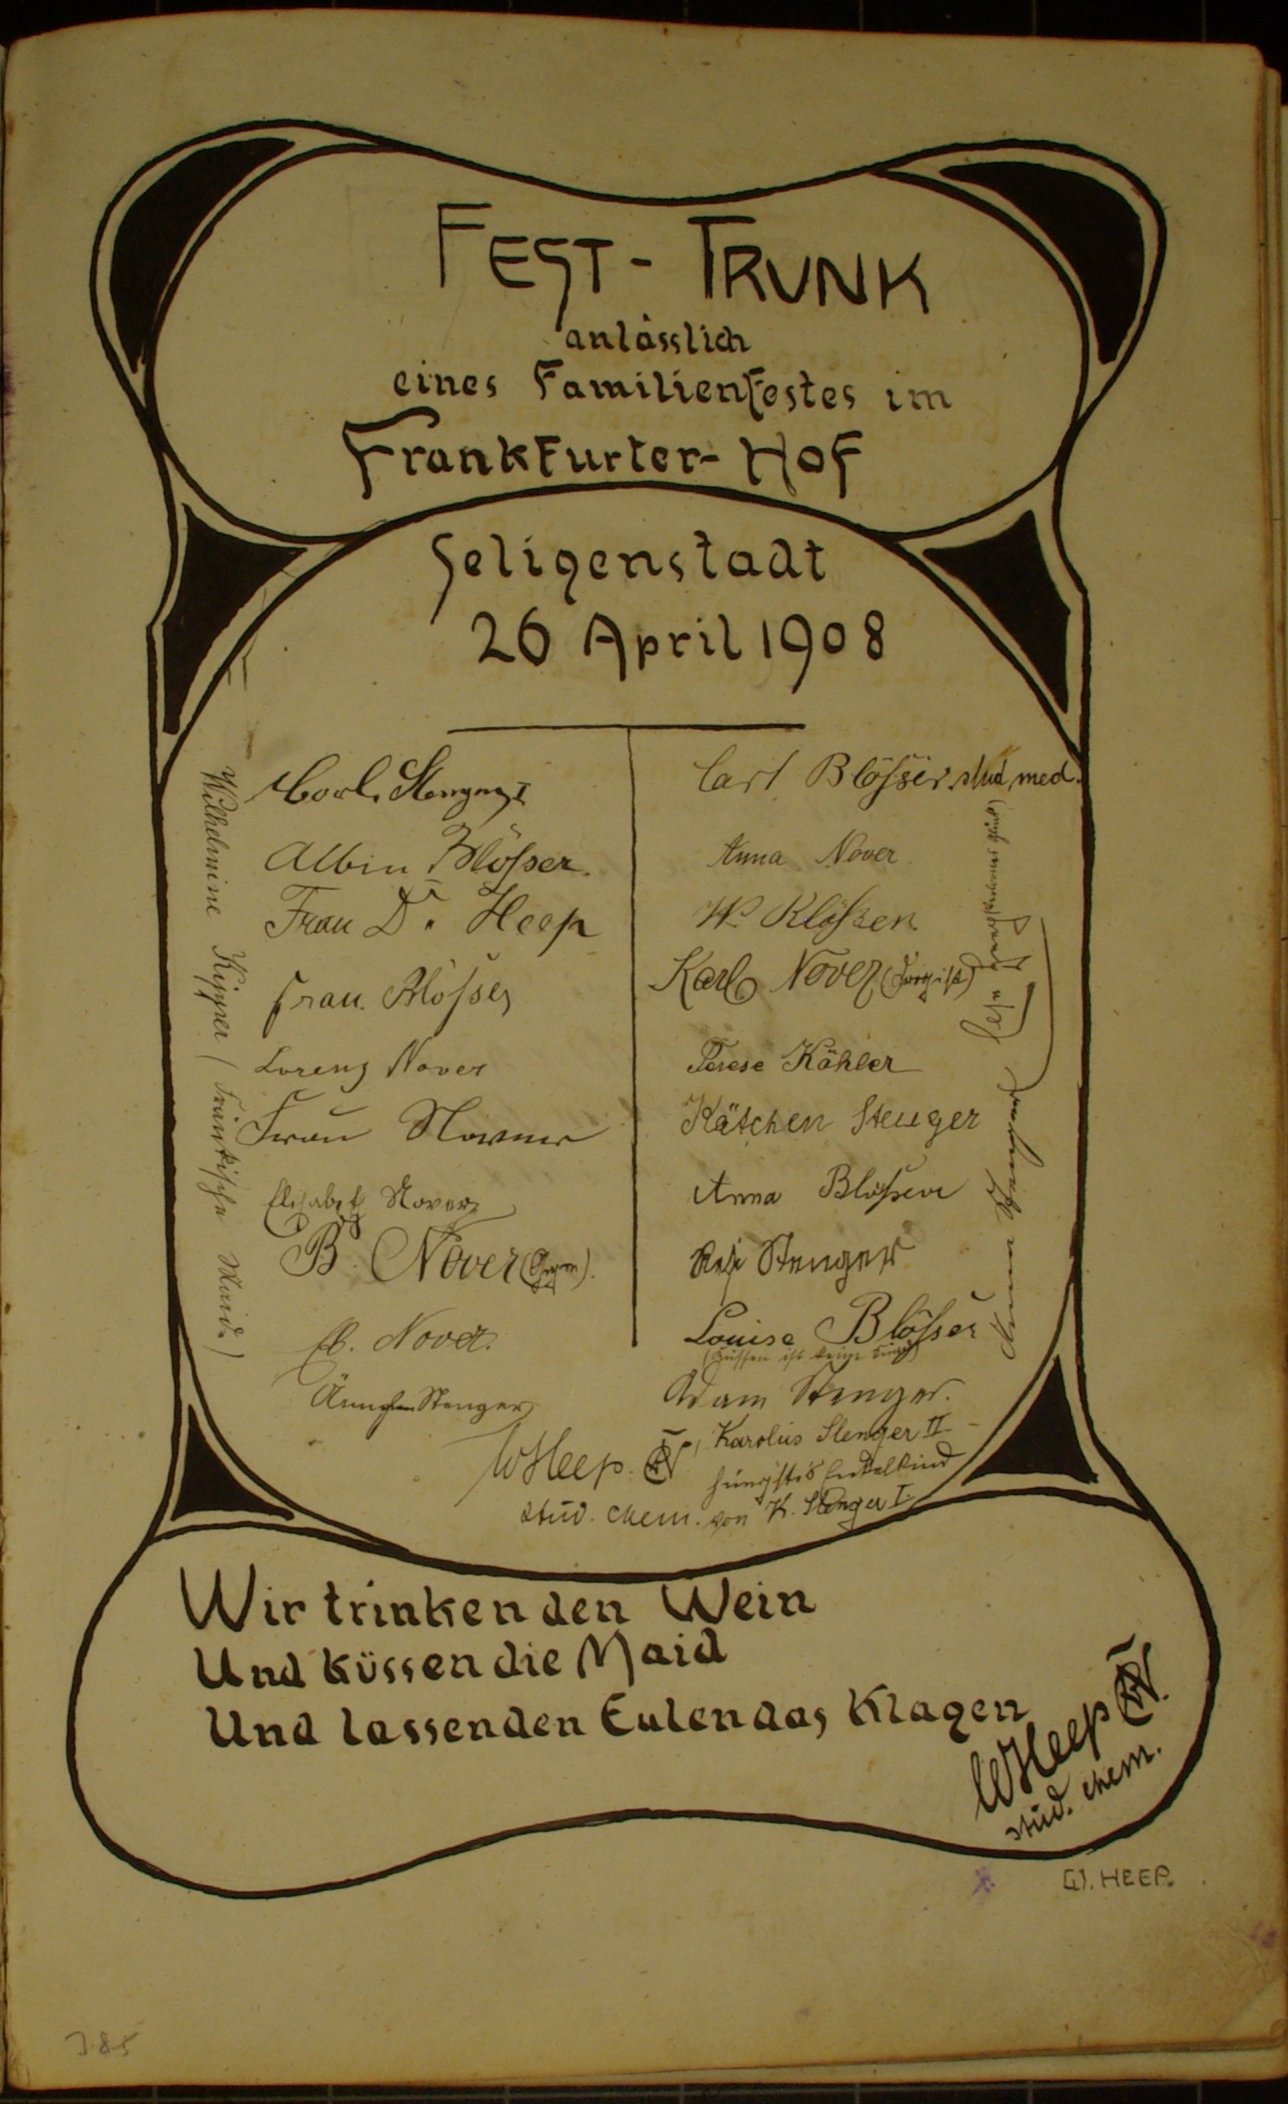 FEST - TRUNK
anlässlich
eines Familienfestes im
Frankfurter-Hof
Seligenstadt
26 April 1908
Carl Stenger I
Albin Blösser.
Frau Dr. Heep
Frau. Blösser
Lorenz Nover
Frau Nover
Elisabeth Nover
B. Nover
Nover.
Ännchen Stenger
WHeep.
stud. chem.
Wilhelmine Kipper (Fränkische Maid.)
Carl Blösser. stud med.
Anna Nover.
W. Klösser
Karl Nover
Terese Köhler
Kätchen Stenger
Anna Blösser
Resi Stenger
Louise Blösser
(Küssen ist keine Sünd)
Adam Stenger.
Karolus Stenger II -
jüngstes Enkelkind
von K. Stenger I.
Wir trinken den Wein
Und küssen die Maid
Und lassen den Eulen das Klagen
WHeep
stud. chem.
W. HEEP.
385